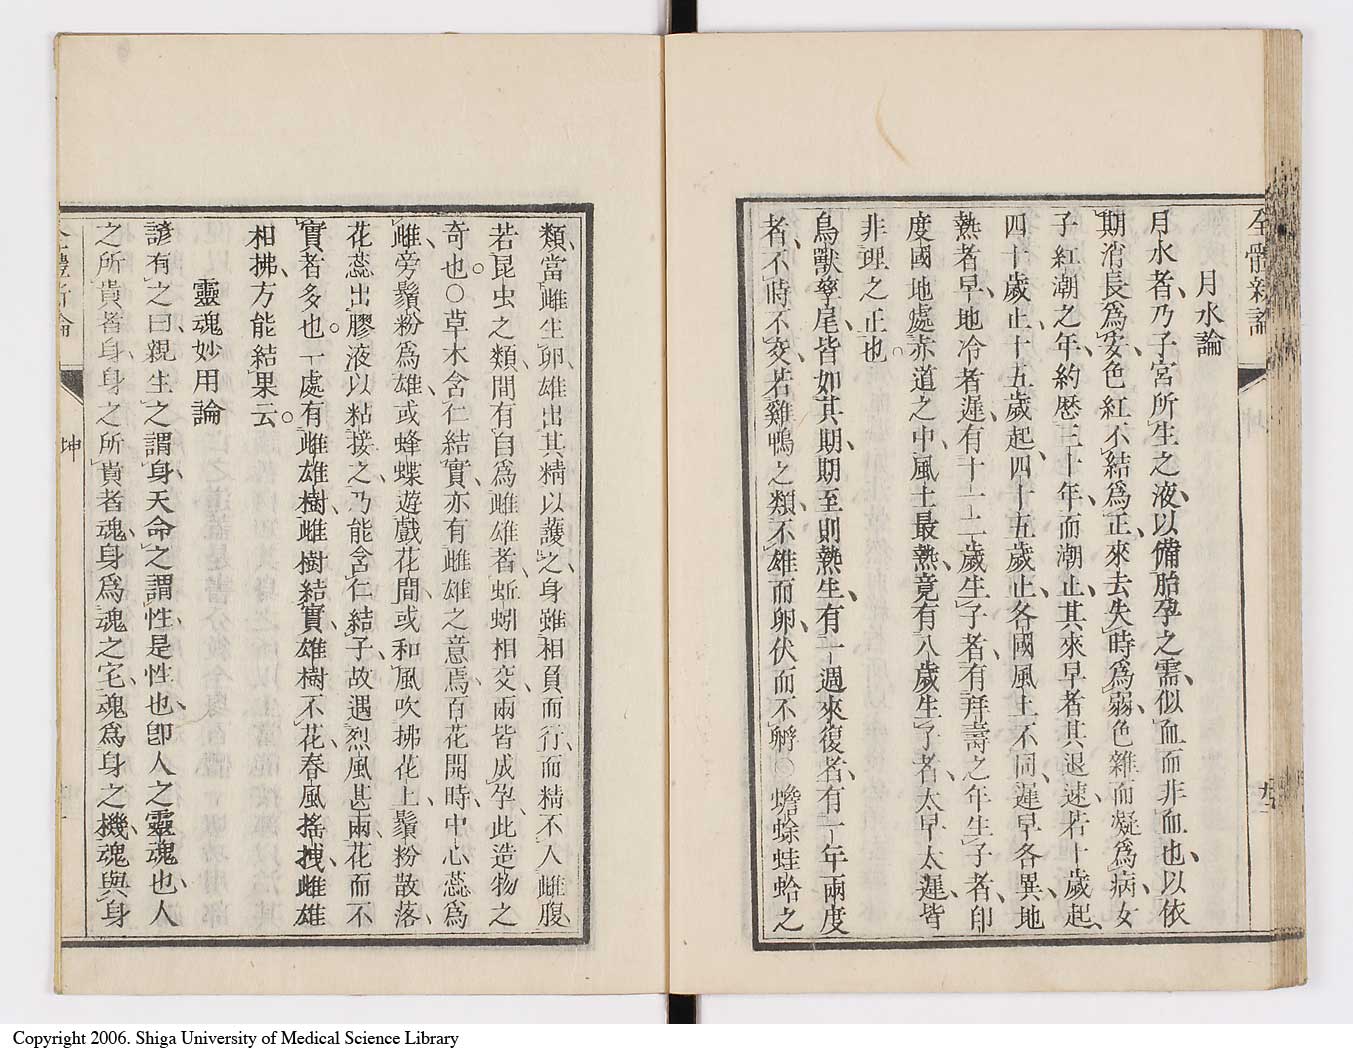 全體新論
坤
九
月水論
月水者、乃子宮所生之液、以備胎孕之需、似血而非血也、以依
期消長爲安、色紅不結爲正、來去失時爲弱、色雜而凝爲病、女
子紅潮之年、約歷三十年而潮止、其來早者其退速、若十歲起、
四十歲止、十五歲起、四十五歲止、各國風土不同、遲早各異、地
熱者早、地冷者遲、有十一二歲生子者、有拜壽之年生子者、印
度國地處赤道之中、風土最熱、竟有八歲生子者、太早太遲、皆
非理之正也。
鳥獸孳尾、皆如其期、期至則熱生、有一週來復者、有一年兩度
者、不時不交、若雞鴨之類、不雄而卵、伏而不孵○蟾蜍蛙蛤之
類、當雌生卵、雄出其精以護之、身雖相負而行、而精不入雌腹、
若昆虫之類、間有自爲雌雄者、蚯蚓相交、兩皆成孕、此造物之
奇也。○草木含仁結實、亦有雌雄之意焉、百花開時、中心蕊爲
雌、旁鬚粉爲雄、或蜂蝶遊戲花間、或和風吹拂花上、鬚粉散落、
花蕊出膠液以粘接之、乃能含仁結子、故遇烈風甚雨、花而不
實者多也。一處有雌雄樹、雌樹結實、雄樹不花、春風搖拽、雌雄
相拂、方能結果云。
靈魂妙用論
諺有之曰、親生之謂身、天命之謂性、是性也、卽人之靈魂也、人
之所貴者身、身之所貴者魂、身爲魂之宅、魂爲身之機、魂與身
全體新論
坤
Copyright 2006. Shiga University of Medical Science Library